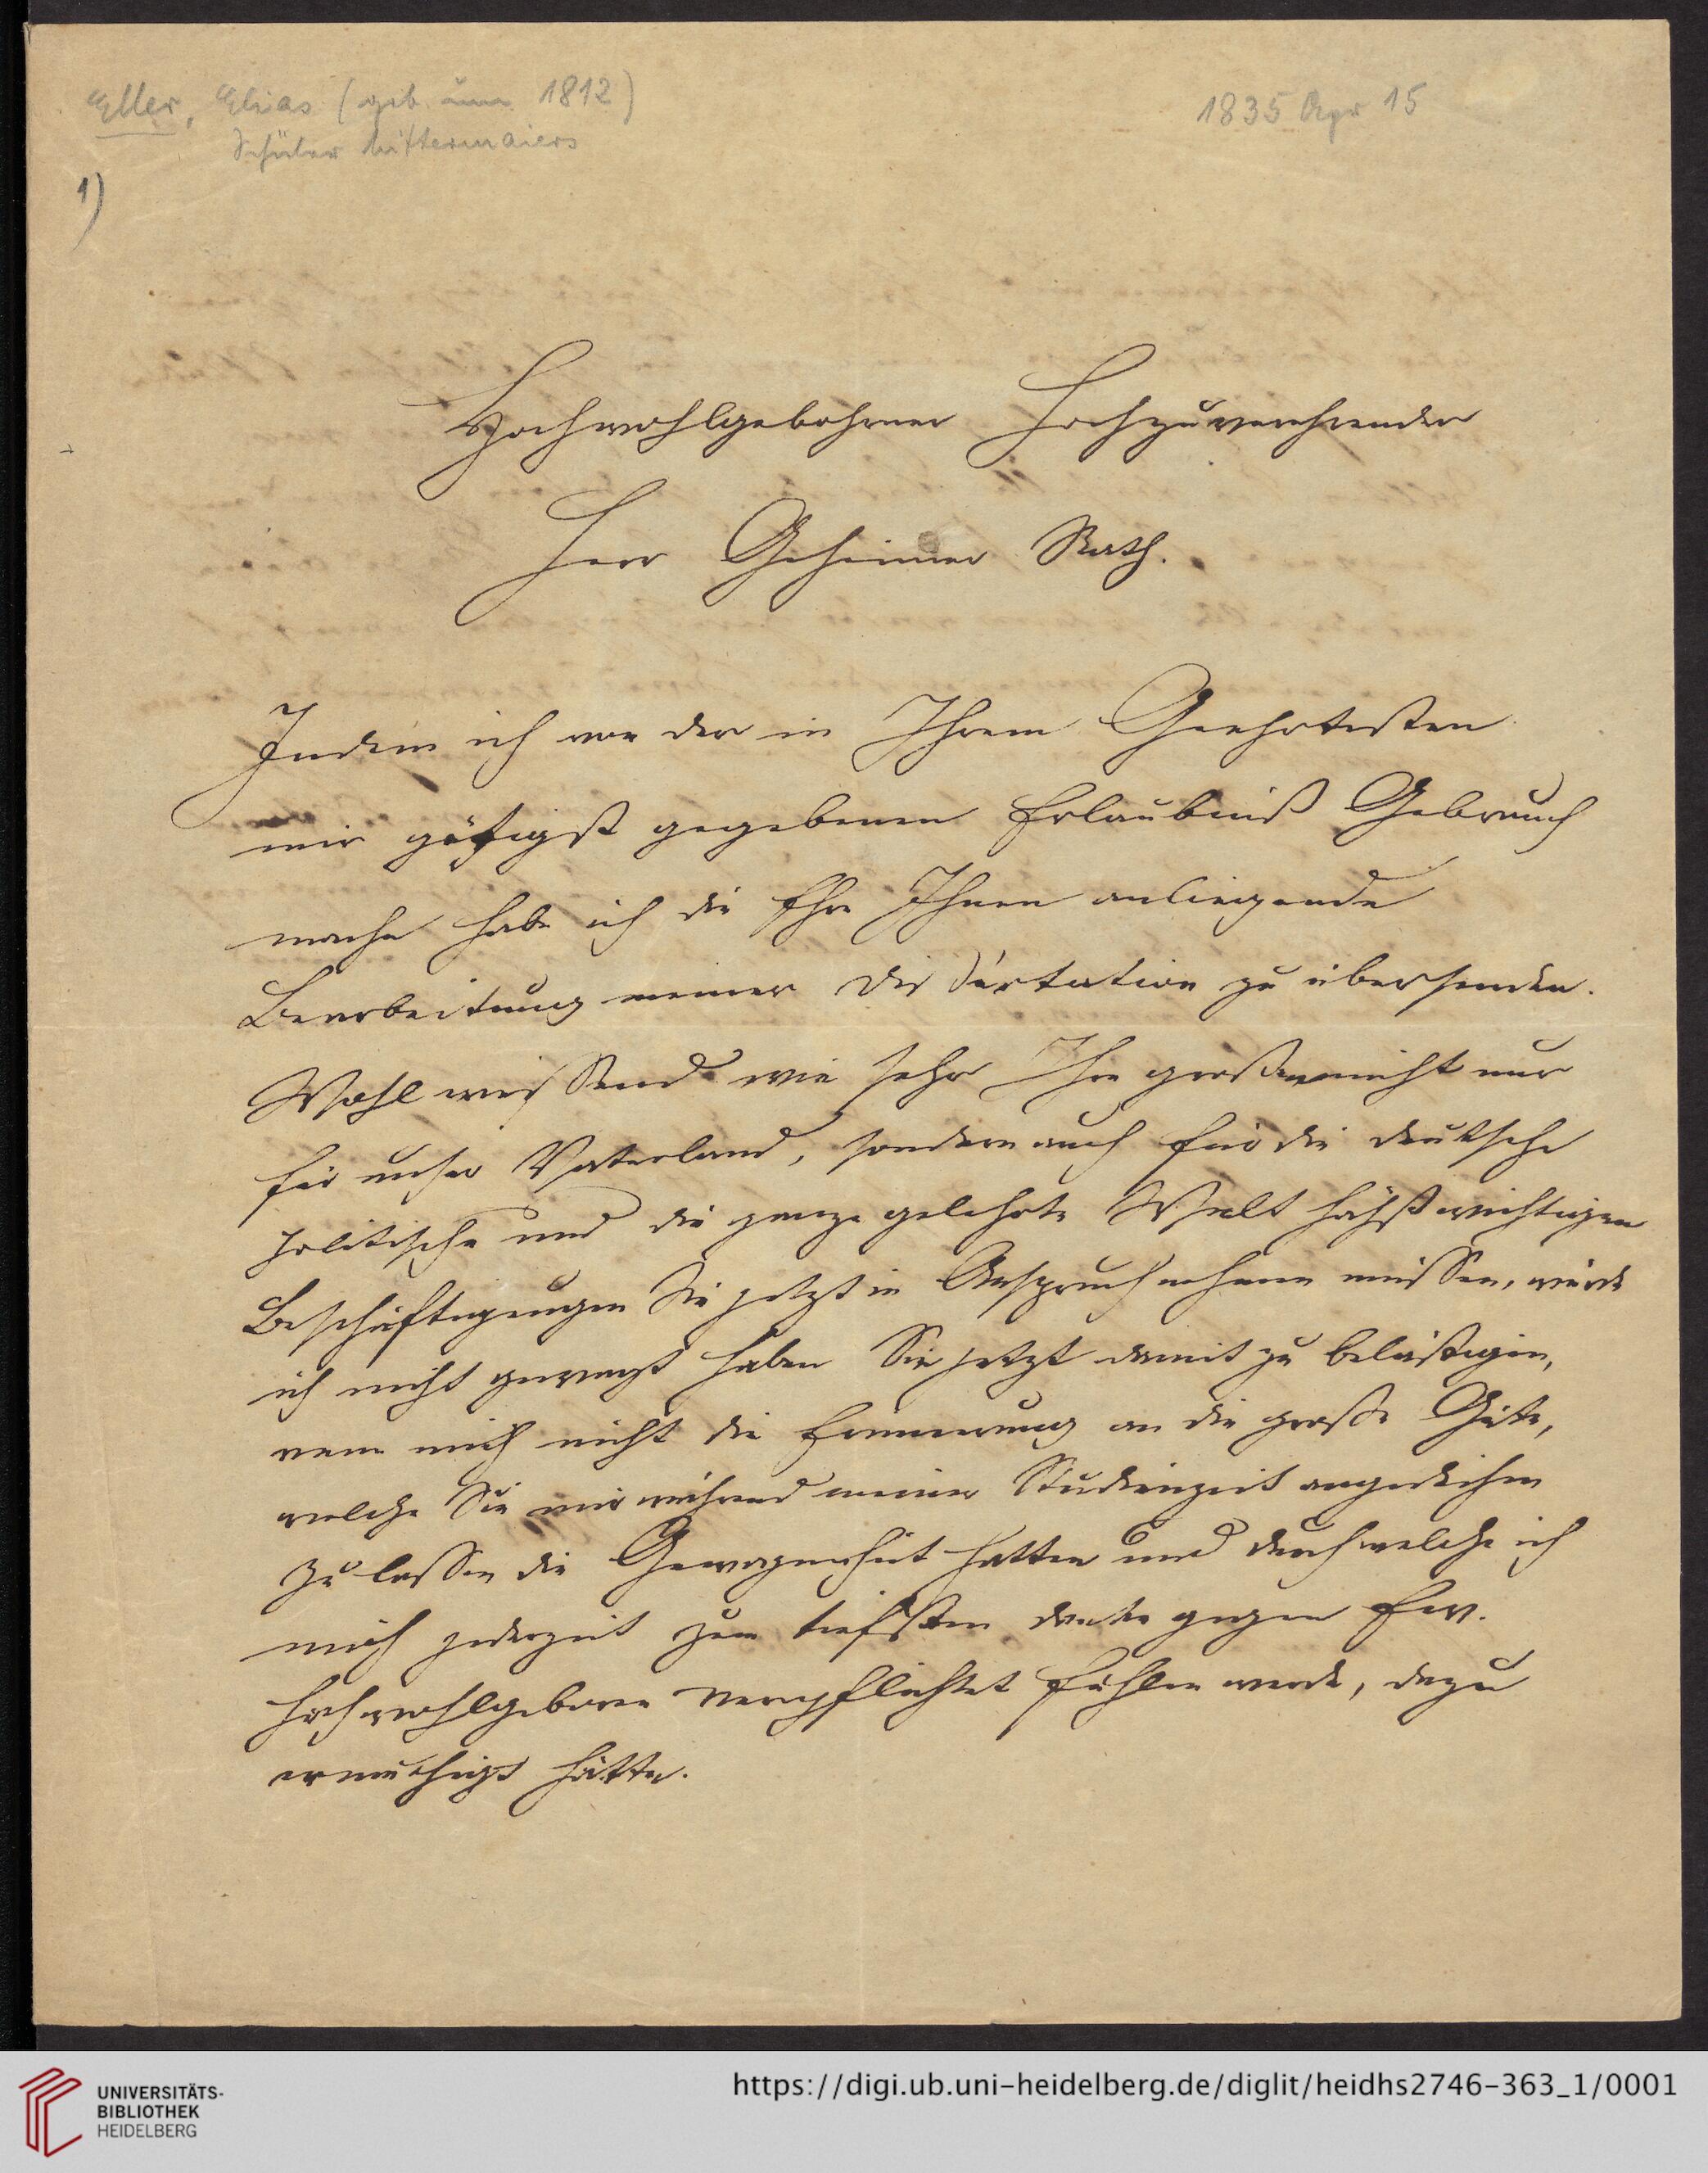 Eller, Elias (geb. um 1812)
Schüler Mittermaiers
1835 Apr 15
1)
Hochwohlgebohrner Hochzuverehrender
Herr Geheimer Rath.
Indem ich von der in Ihrem Geehrtesten
mir gütigst gegebenen Erlaubniß Gebrauch
mache habe ich die Ehre Ihnen anliegende
Bearbeitung meiner Dissertation zu übersenden.
Wohl wissend wie sehr Ihre großen nicht nur
für unser Vaterland, sondern auch für die deutsche
politische und die ganze gelehrte Welt höchst wichtigen
Beschäftigungen Sie jetzt in Anspruch nehmen müssen, würde
ich nicht gewagt haben Sie jetzt damit zu belästigen,
wenn mich nicht die Erinnerung an die große Güte,
welche Sie mir während meiner Studienzeit angedeihen
zu lassen die Gewogenheit hatten und durch welche ich
mich jederzeit zum tiefsten Danke gegen Ew.
Hochwohlgeboren verpflichtet fühlen werde, dazu
ermuthigt hätte.
UNIVERSITÄTS-
BIBLIOTHEK
HEIDELBERG
https://digi.ub.uni-heidelberg.de/diglit/heidhs2746-363_1/0001